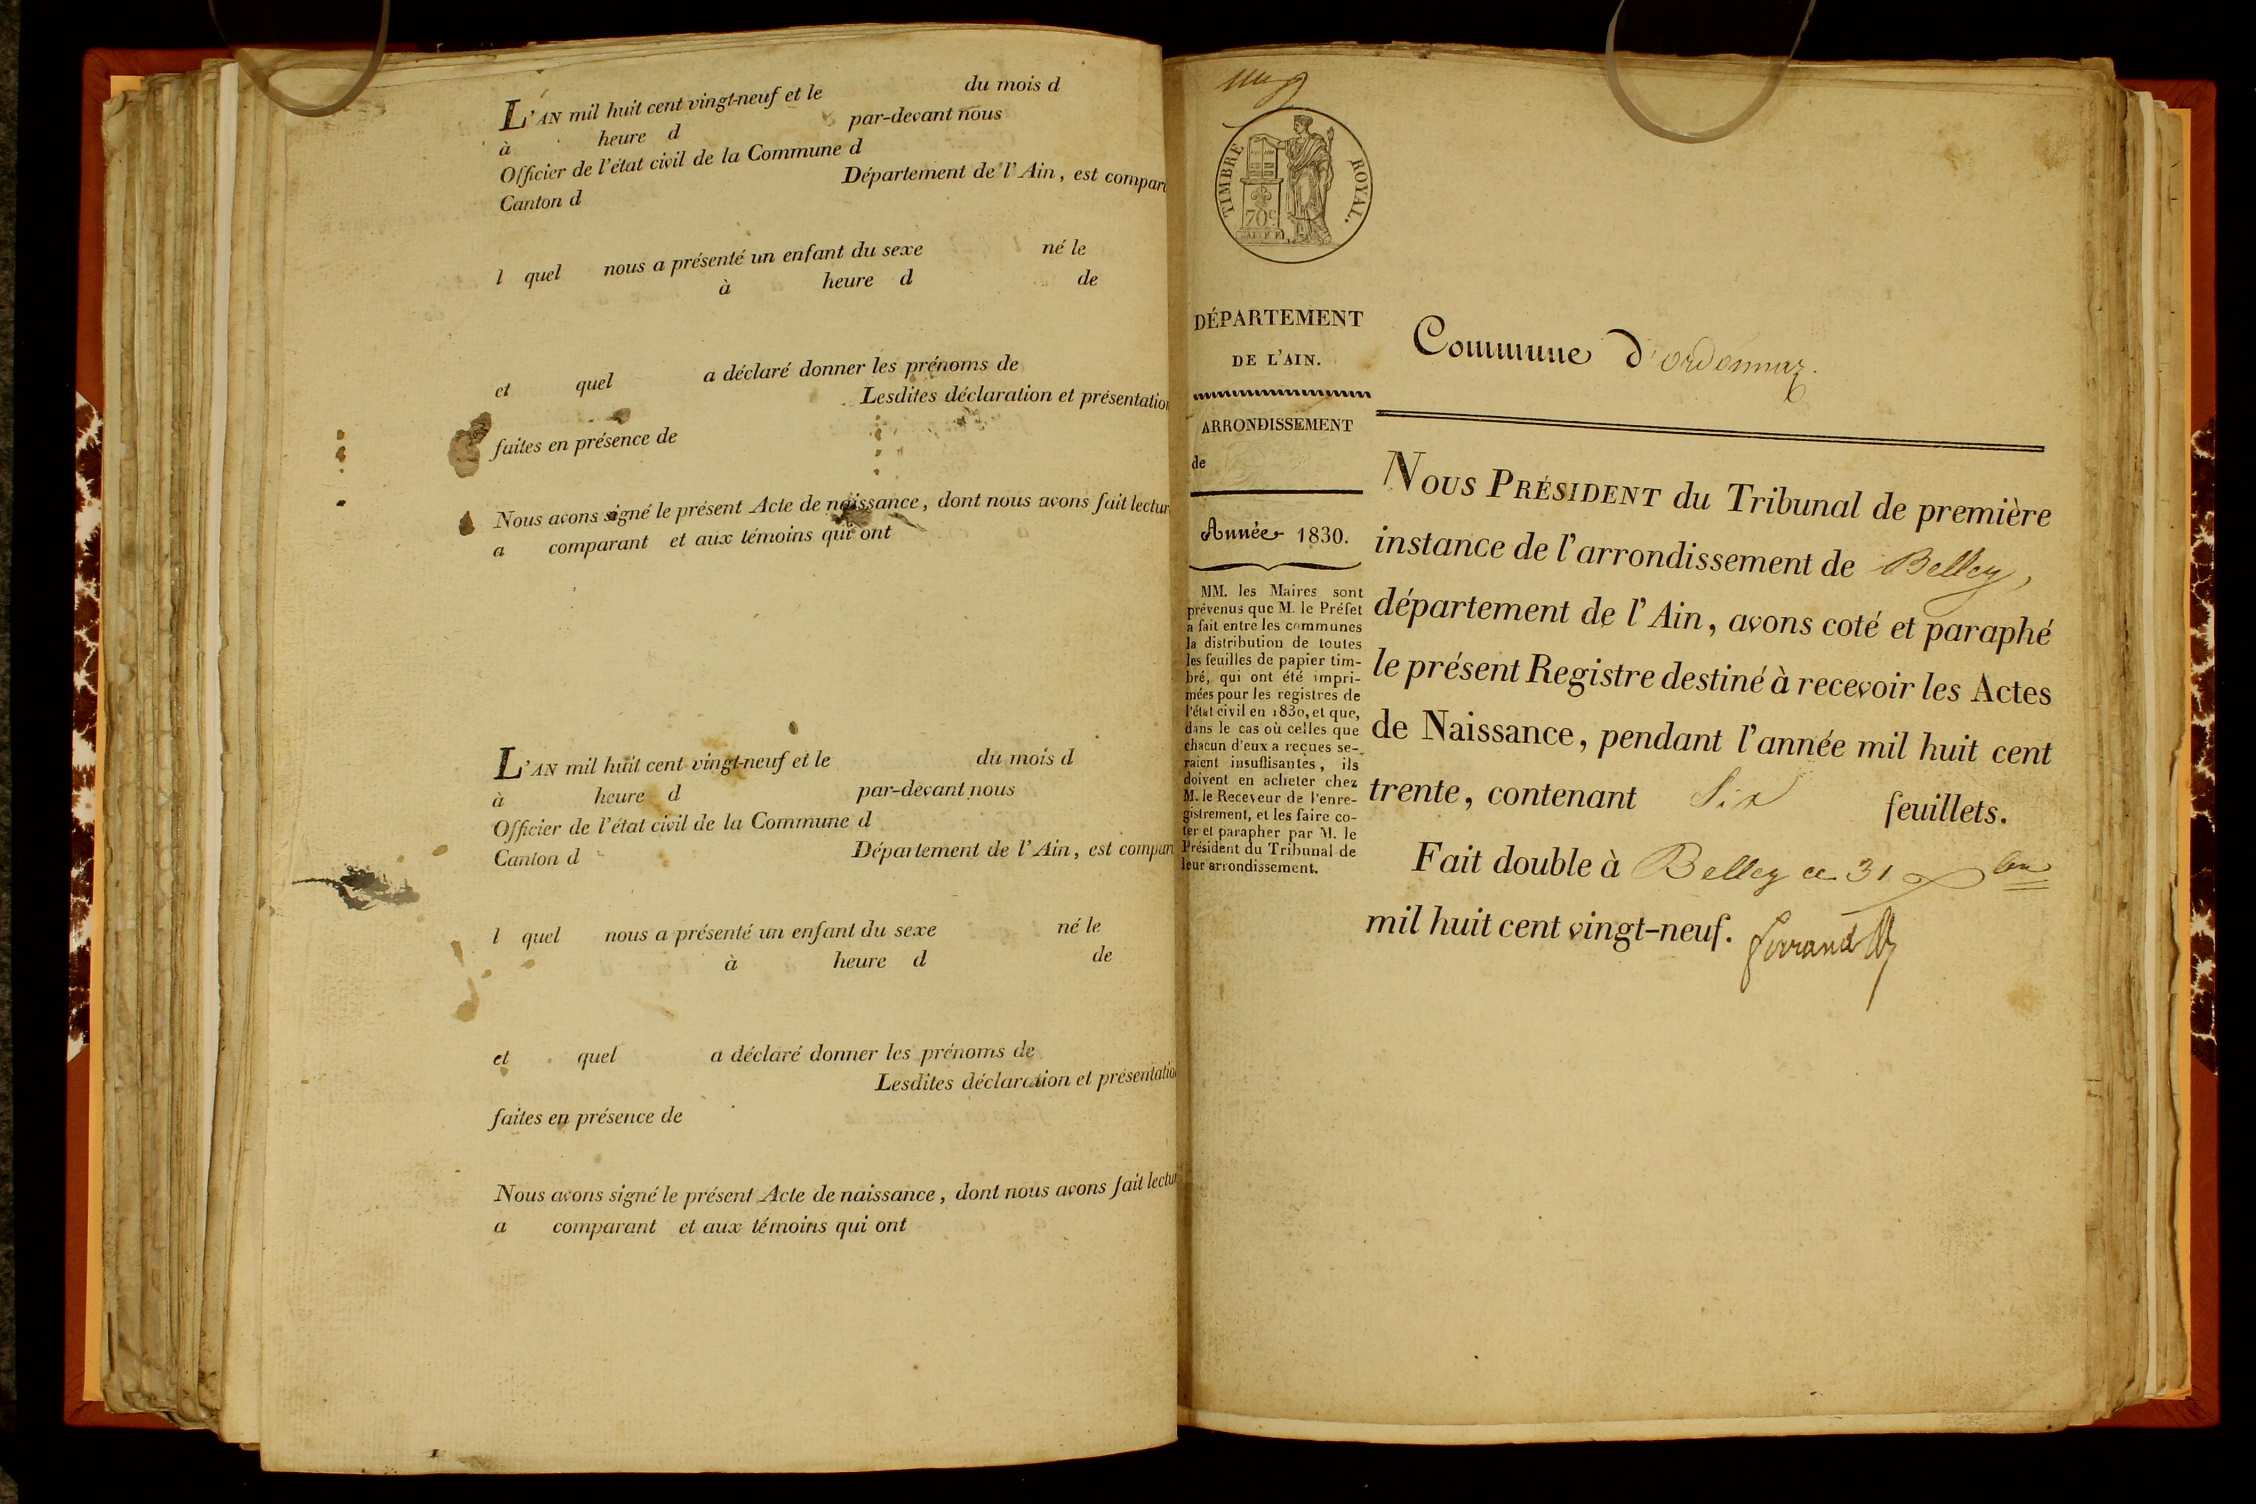 L'AN mil huit cent vingt-neuf et le du mois d
à heure d par-devant nous
Officier de l'état civil de la Commune d
Canton d Département de l'Ain, est compar
l quel nous a présenté un enfant du sexe né le
à heure d de
et quel a déclaré donner les prénoms de
Lesdites déclaration et présentation
faites en présence de
Nous avons signé le présent Acte de naissance, dont nous avons fait lectur
a comparant et aux témoins qui ont
L'AN mil huit cent vingt-neuf et le du mois d
à heure d par-devant nous
Officier de l'état civil de la Commune d
Canton d Département de l'Ain, est compar
l quel nous a présenté un enfant du sexe né le
à heure d de
et quel a déclaré donner les prénoms de
Lesdites déclaration et présentatio
faites en présence de
Nous avons signé le présent Acte de naissance, dont nous avons fait lectur
a comparant et aux témoins qui ont
TIMBRE ROYAL.
70c
DÉPARTEMENT
DE L'AIN.
ARRONDISSEMENT
de
Année 1830.
MM. les Maires sont
prévenus que M. le Préfet
a fait entre les communes
la distribution de toutes
les feuilles de papier tim-
bré, qui ont été impri-
mées pour les registres de
l'état civil en 1830, et que,
dans le cas où celles que
chacun d'eux a reçues se-
raient insuffisantes, ils
doivent en acheter chez
M. le Receveur de l'enre-
gistrement, et les faire co-
ter et parapher par M. le
Président du Tribunal de
leur arrondissement.
Commune d'ordonnaz.
NOUS PRÉSIDENT du Tribunal de première
instance de l'arrondissement de Belley,
département de l'Ain, avons coté et paraphé
le présent Registre destiné à recevoir les Actes
de Naissance, pendant l'année mil huit cent
trente, contenant Six feuillets.
Fait double à Belley ce 31 Xbre
mil huit cent vingt-neuf. ferrand